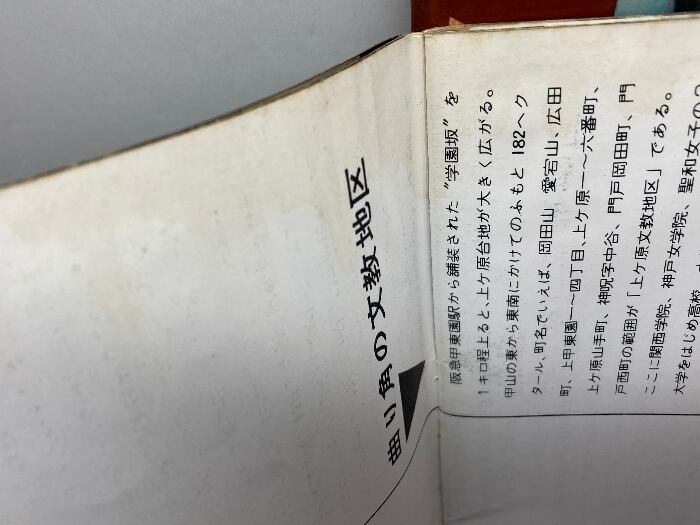 曲り角の文教地区
阪急甲東園駅から舗装された〝学園坂〟を
1キロ程上ると、上ケ原台地が大きく広がる。
甲山の東から東南にかけてのふもと182ヘク
タール、町名でいえば、岡田山 愛宕山、広田
町、上甲東園一〜四丁目、上ケ原一〜六番町、
上ケ原山手町、神呪字中谷、門戸岡田町、門
戸西町の範囲が「上ケ原文教地区」である。
ここに関西学院、神戸女学院、聖和女子の
大学をはじめ高校、